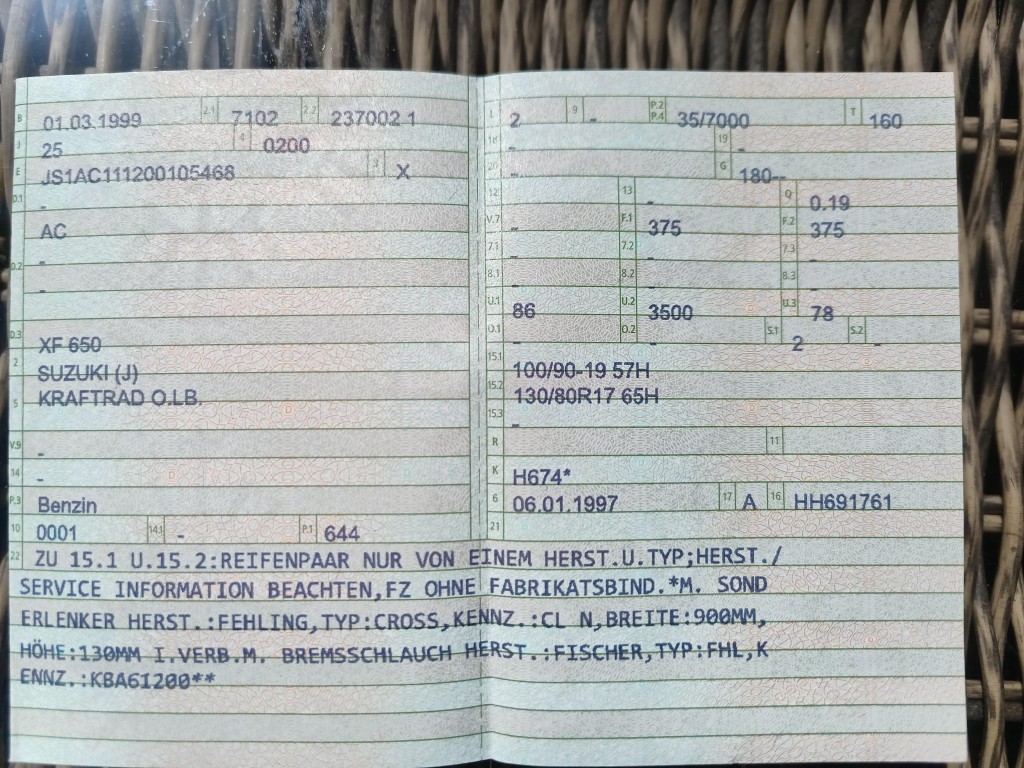 B 01.03.1999 2.1 7102 2.2 237002 1
J 25 4 0200
E JS1AC111200105468 3 X
D.1 -
AC
D.2 -
-
D.3 XF 650
2 SUZUKI (J)
5 KRAFTRAD O.LB.
V.9 -
14 -
P.3 Benzin
10 0001 14.1 - P.1 644
L 2 9 - P.2 P.4 35/7000 T 160
18 - 19 -
20 - G 180--
12 - 13 - Q 0.19
V.7 - F.1 375 F.2 375
7.1 - 7.2 - 7.3 -
8.1 - 8.2 - 8.3 -
U.1 86 U.2 3500 U.3 78
O.1 - O.2 - S.1 2 S.2 -
15.1 100/90-19 57H
15.2 130/80R17 65H
15.3 -
R 11
K H674*
6 06.01.1997 17 A 16 HH691761
21
22 ZU 15.1 U.15.2:REIFENPAAR NUR VON EINEM HERST.U.TYP;HERST./
SERVICE INFORMATION BEACHTEN,FZ OHNE FABRIKATSBIND.*M. SOND
ERLENKER HERST.:FEHLING,TYP:CROSS,KENNZ.:CL N,BREITE:900MM,
HÖHE:130MM I.VERB.M. BREMSSCHLAUCH HERST.:FISCHER,TYP:FHL,K
ENNZ.:KBA61200**